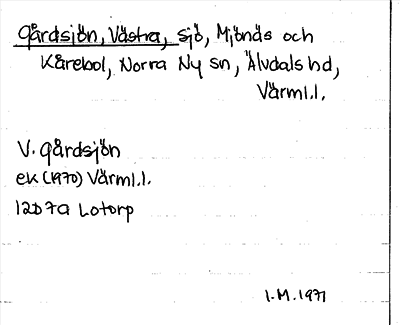 Gårdsjön, Västra, sjö, Mjönäs och
Kårebol, Norra Ny sn, Älvdals hd,
Värml.l.
V. Gårdsjön
ek (1970) Värml.l.
12D 7a Lotorp
I.M. 1971